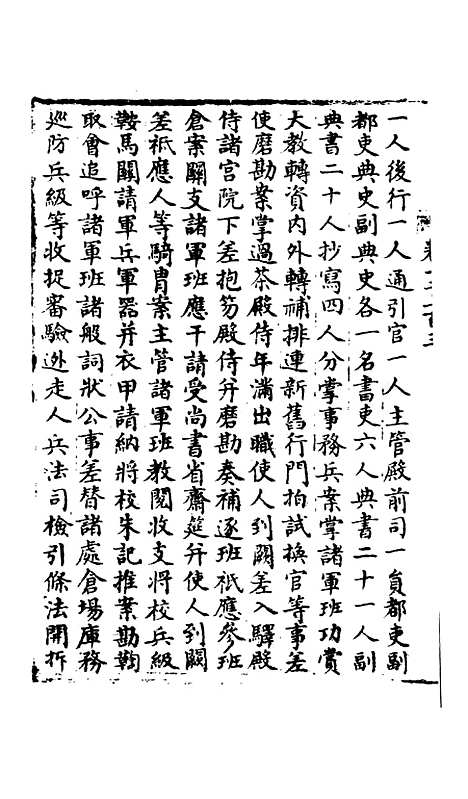 一人後行一人通引官一人主管殿前司一員都吏副
都吏典史副典史各一名書吏六人典書二十一人副
典書二十人抄寫四人分掌事務兵案掌諸軍班功賞
大教轉資內外轉補排連新舊行門拍試換官等事差
使磨勘案掌過茶殿侍年滿出職使人到闕差入驛殿
侍諸宮院下差抱笏殿侍弁磨勘奏補逐班祇應參班
倉案關支諸軍班應干請受尚書省齋筵弁使人到闕
差祇應人等騎胄案主管諸軍班教閱收支將校兵級
鞍馬關請軍兵軍器并衣甲請納將校朱記推案勘鞫
取會追呼諸軍班諸般詞狀公事差替諸處倉場庫務
廵防兵級等收捉審驗迯走人兵法司檢引條法開拆